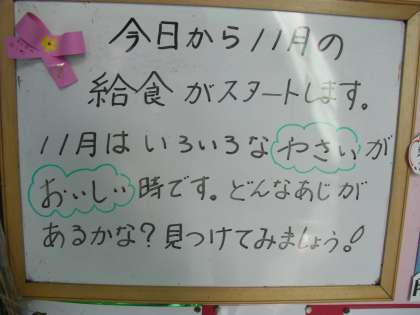 今日から11月の
給食がスタートします。
11月はいろいろなやさいが
おいしい時です。どんなあじが
あるかな?見つけてみましょう!